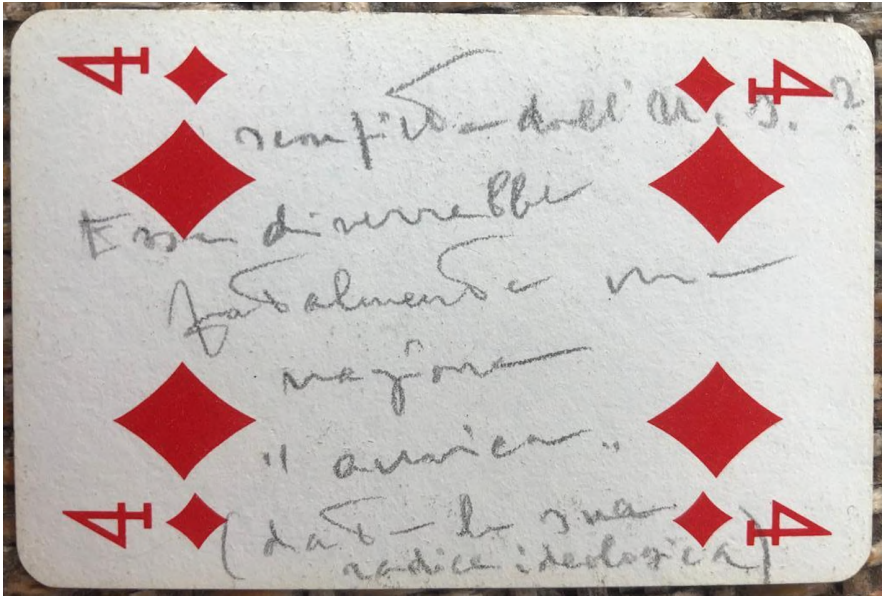 4 4
sconfitta dall' U. S. ?
Essa diverrebbe
fatalmente una
nazione
" amica "
(data la sua
radice ideologica)
4 4